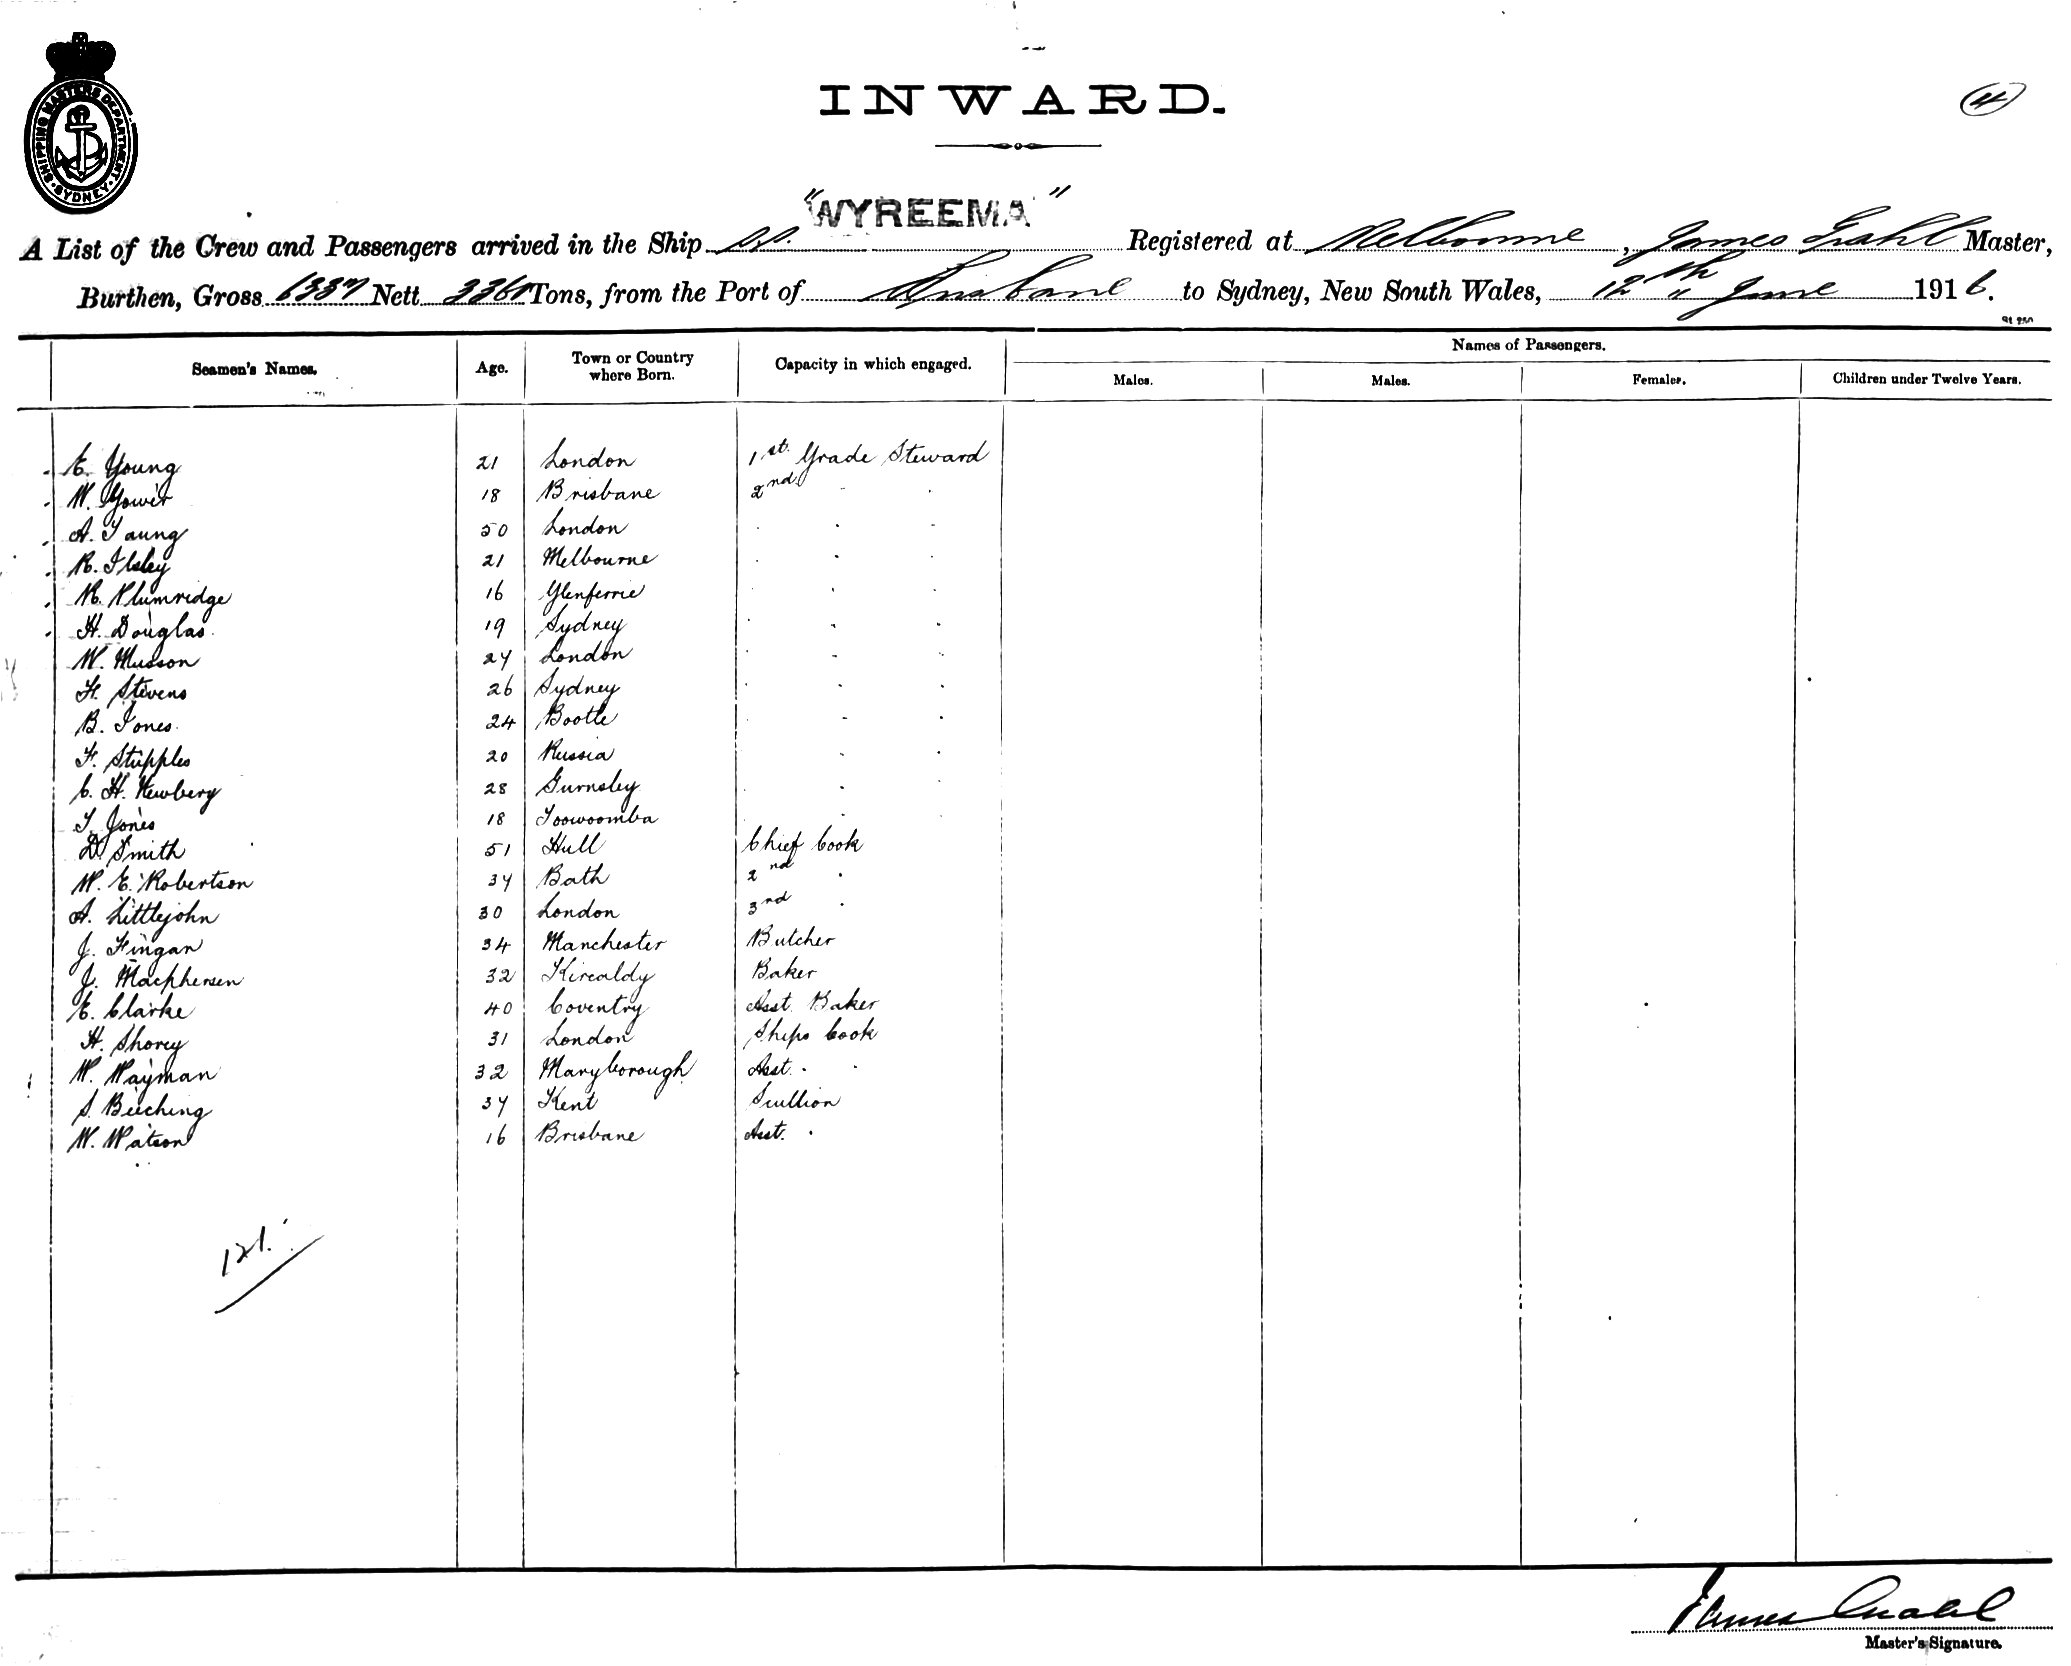 INWARD.
4
SHIPPING MASTERS DEPARTMENT. SYDNEY.
"WYREEMA"
A List of the Crew and Passengers arrived in the Ship s.s. Registered at Melbourne, James Grahl Master,
Burthen, Gross 6337 Nett 3361 Tons, from the Port of Brisbane to Sydney, New South Wales, 12th June 1916.
Seamen's Names. Age. Town or Country where Born. Capacity in which engaged. Names of Passengers.
Males. Males. Females. Children under Twelve Years.
E. Young 21 London 1st. Grade Steward
W. Gower 18 Brisbane 2nd
A. Taung 50 London
R. Ilsley 21 Melbourne
R. Plumridge 16 Glenferrie
H. Douglas 19 Sydney
W. Musson 27 London
F. Stevens 26 Sydney
B. Jones. 24 Bootle
F. Stupples 20 Russia
C. H. Newbery 28 Gurnsley
T. Jones 18 Toowoomba
D. Smith 51 Hull Chief Cook
W. E. Robertson 37 Bath 2nd
A. Littlejohn 30 London 3rd
J. Fingan 34 Manchester Butcher
J. Macphersen 32 Kircaldy Baker
E. Clarke 40 Coventry Asst. Baker
H. Shorey 31 London Ships Cook
W. Wayman 32 Maryborough Asst.
S. Beeching 37 Kent Scullion
W. Watson 16 Brisbane Asst.
121.
James Grahl
Master's Signature.